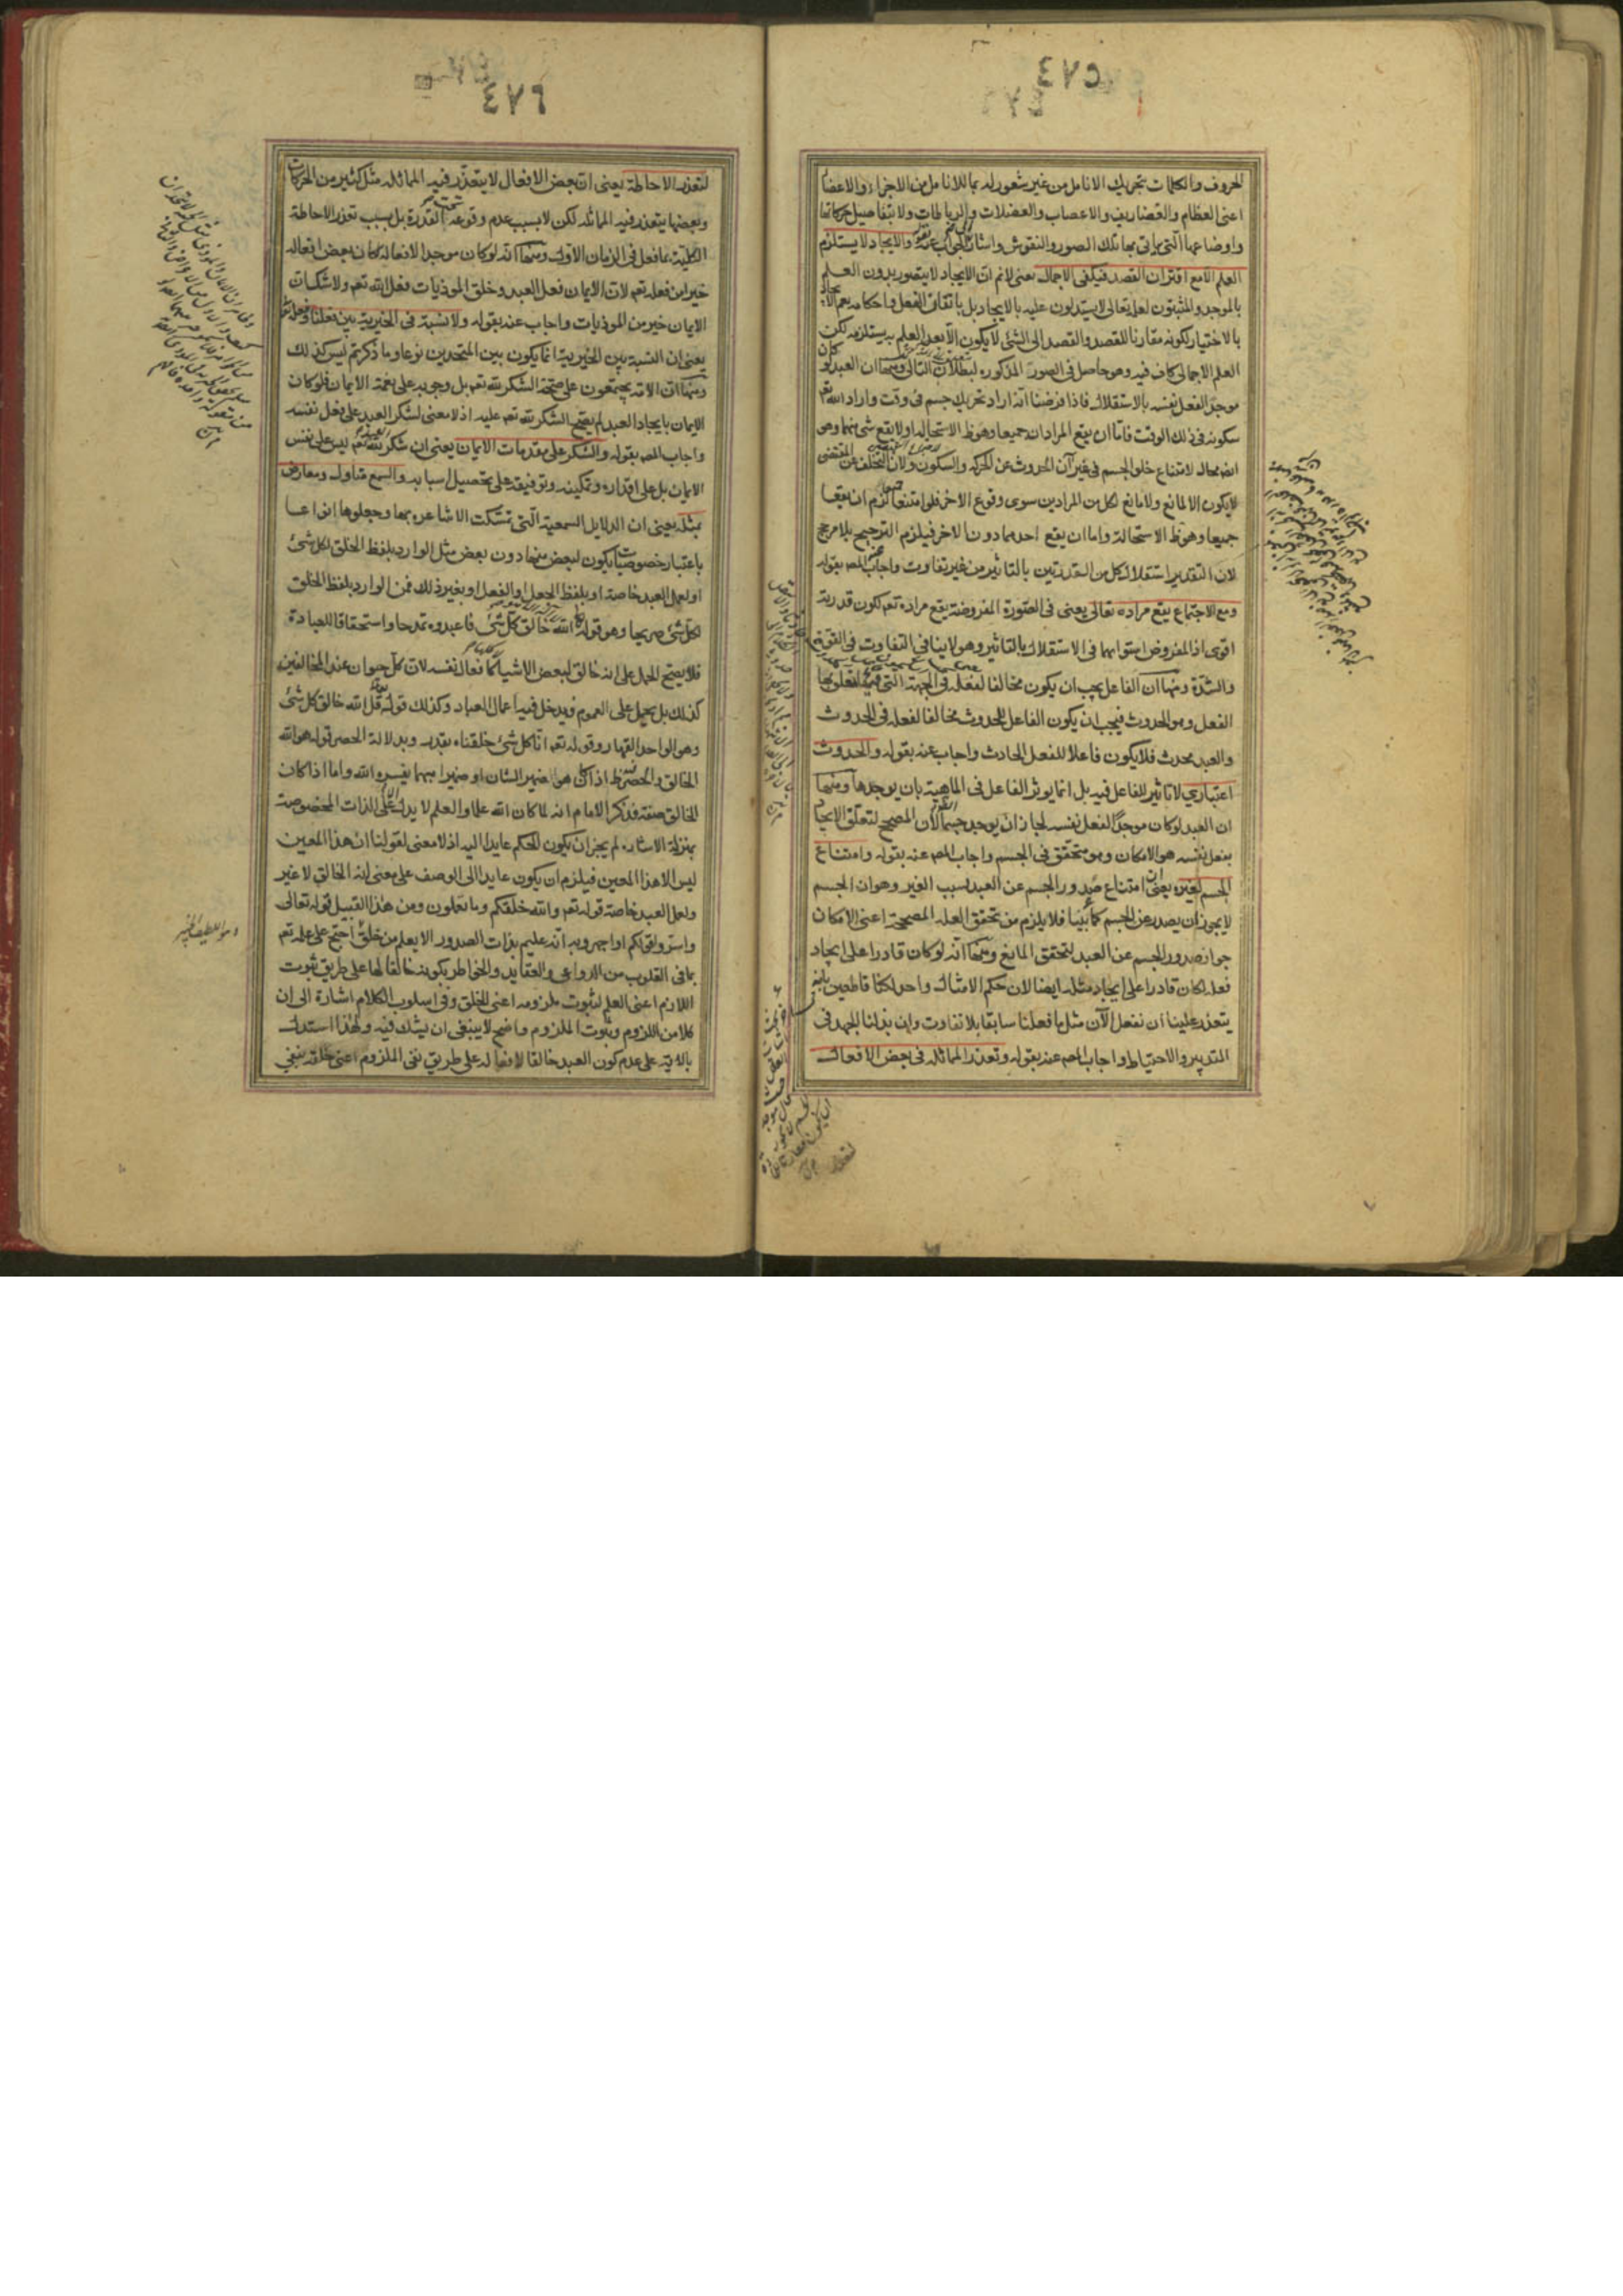 ٤٧٥
الحروف والكلمات بتحريك الانامل من غير شعور له بما للانامل من الاجزاء والاعضا
اعنى العظام والغضاريف والاعصاب والعضلات والرباطات ولا بتفاصيل حركاتها
واوضاعها التى بها تلك الصور والنقوش واشار الى الجواب عنه بقوله والايجاد لا يستلزم
العلم الا مع اقتران القصد فيكفى الاجمال يعنى لانم ان الايجاد لا يتصور بدون العلم
بالموجد والمثبتون لعلمه تعالى لا يستدلون عليه بالايجاد بل باتقان الفعل واحكامه نعم الايجاد
بالاختيار لكونه مقارنا للقصد والقصد الى الشئ لا يكون الا بعد العلم به يستلزمه لكن
العلم الاجمالى كاف فيه وهو حاصل فى الصور المذكورة ومنها ان العبد لو كان
موجدا لفعل نفسه بالاستقلال فاذا فرضنا انه اراد تحريك جسم فى وقت واراد الله تع
سكونه فى ذلك الوقت فاما ان يقع المرادان جميعا وهو ظ الاستحالة او لا يقع شئ منهما وهو
ايضا محال لامتناع خلو الجسم فى غير آن الحدوث عن الحركة والسكون ولان التخلف عن المقتضى
لا يكون الا لمانع ولا مانع لكل من المرادين سوى وقوع الاخر فلو امتنعا لزم ان يقعا
جميعا وهو ظ الاستحالة واما ان يقع احدهما دون الاخر فيلزم الترجيح بلا مرجح
لان التقدير استقلال كل من القدرتين بالتاثير من غير تفاوت واجاب المص بقوله
ومع الاجتماع يقع مراده تعالى يعنى فى الصورة المفروضة يقع مراده تعم لكون قدرته
اقوى اذ المفروض استواؤهما فى الاستقلال بالتاثير وهو لا ينافى التفاوت فى القوة
والشدة ومنها ان الفاعل يجب ان يكون مخالفا لفعله فى الجهة التى بها يتعلق
الفعل وهو الحدوث فيجب ان يكون الفاعل للحدوث مخالفا لفعله فى الحدوث
والعبد محدث فلا يكون فاعلا للفعل الحادث واجاب عنه بقوله والحدوث
اعتبارى لا تاثير للفاعل فيه بل انما يوثر الفاعل فى الماهية بان يوجدها ومنها
ان العبد لو كان موجدا لفعل نفسه لجاز ان يوجد جسما لان المصحح لتعلق الايجاد
بفعل نفسه هو الامكان وهو متحقق فى الجسم واجاب المص عنه بقوله وامتناع
الجسم لغيره يعنى ان امتناع صدور الجسم عن العبد بسبب الغير وهو ان الجسم
لا يجوز ان يصدر عن الجسم كما بينا فلا يلزم من تحقق العلة المصححة اعنى الامكان
جواز صدور الجسم عن العبد لتحقق المانع ومنها انه لو كان قادرا على ايجاد
فعله لكان قادرا على ايجاد مثله ايضا لان حكم الامثال واحد لكنا قاطعين بانه
يتعذر علينا ان نفعل الآن مثل ما فعلنا سابقا بلا تفاوت وان بذلنا الجهد فى
التدبير والاحتياط واجاب المص عنه بقوله وتعذر المماثلة فى بعض الافعال
٤٧٦
لتعذر الاحاطة يعنى ان بعض الافعال لا يتعذر فيه المماثلة مثل كثير من الحركات
وبعضها يتعذر فيه المماثلة لكن لا بسبب عدم وقوعه تحت القدرة بل بسبب تعذر الاحاطة
الكلية بما فعل فى الزمان الاول ومنها انه لو كان موجدا لافعاله لكان بعض افعاله
خيرا من فعله تعم لان الايمان فعل العبد وخلق الموذيات فعل الله تعم ولا شك ان
الايمان خير من الموذيات واجاب عنه بقوله ولا نسبة فى الخيرية بين فعلنا وفعله تع
يعنى ان النسبة بين الخيرية انما يكون بين المتحدين نوعا وما ذكرتم ليس كذلك
ومنها ان الامة يجمعون على صحة الشكر لله تعم بل وجوبه على نعمة الايمان فلو كان
الايمان بايجاد العبد لم يصح الشكر لله تعم عليه اذ لا معنى لشكر العبد على فعل نفسه
واجاب المص بقوله والشكر على مقدمات الايمان يعنى ان شكر العبد لله تعم ليس على نفس
الايمان بل على اقداره وتمكينه وتوفيقه على تحصيل اسبابه والسمع متاول ومعارض
بمثله يعنى ان الدلايل السمعية التى تمسكت الاشاعرة بها وجعلوها انواعا
باعتبار خصوصيات يكون لبعض منها دون بعض مثل الوارد بلفظ الخلق لكل شئ
او لعمل العبد خاصة او بلفظ الجعل او الفعل او بغير ذلك فمن الوارد بلفظ الخلق
لكل شئ صريحا وهو قوله تع الله خالق كل شئ فاعبدوه تمدحا واستحقاقا للعبادة
فلا يصح الحمل على انه خالق لبعض الاشياء كافعال نفسه لان كل حيوان عند المخالفين
كذلك بل يحمل على العموم فيدخل فيه اعمال العباد وكذلك قوله تع قل الله خالق كل شئ
وهو الواحد القهار وقوله تعم انا كل شئ خلقناه بقدر وبدلالة الحصر قوله هو الله
الخالق والحصر ظ اذا كان هو ضمير الشان او ضميرا مبهما يفسره الله واما اذا كان
الخالق صفة فذكر الامام انه لما كان الله علما والعلم لا يدل الا على الذات المخصوصة
بمنزلة الاشارة لم يجز ان يكون الحكم عايدا اليه اذ لا معنى لقولنا ان هذا المعين
ليس الا هذا المعين فيلزم ان يكون عايدا الى الوصف على معنى انه الخالق لا غير
ولعمل العبد خاصة قوله تعم والله خلقكم وما تعملون ومن هذا القبيل قوله تعالى
واسروا قولكم او اجهروا به انه عليم بذات الصدور الا يعلم من خلق احتج على علمه تعم
بما فى القلوب من الدواعى والعقايد والخواطر بكونه خالقا لها على طريق ثبوت
اللازم اعنى العلم لثبوت ملزومه اعنى الخلق وفى اسلوب الكلام اشارة الى ان
كلا من اللزوم وثبوت الملزوم واضح لا ينبغى ان يشك فيه ولهذا استدل
بالاية على عدم كون العبد خالقا لافعاله على طريق نفى الملزوم اعنى خلقه بنفى
وهو اللطيف الخبير